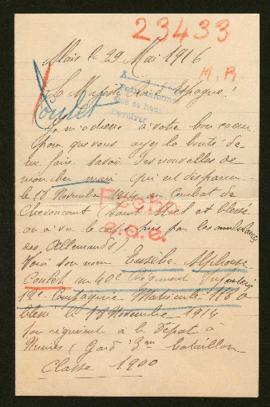 23433
Alais le 29 Mai 1916
M. R.
Sa Majesté Roi d'Espagne!
Coulet
Je m'adresse à votre bon cœur
pour que vous ayez la bonté de
me faire savoir des nouvelles de
mon cher mari qui est disparu
le 17 Novembre 1914 au combat de
Chauvoncourt (Saint Mihiel) et blessé
on a vu le pris par les ambulances
des Allemands
Fecha
a.o.e.
Voici son nom Eusèbe Alphonse
Coulet au 40e Régiment Infanterie
12e Compagnie Matricule
blessé le 17 Novembre 1914
son régiment a le dépôt à
Nimes (Gard) bataillon
Classe 1900